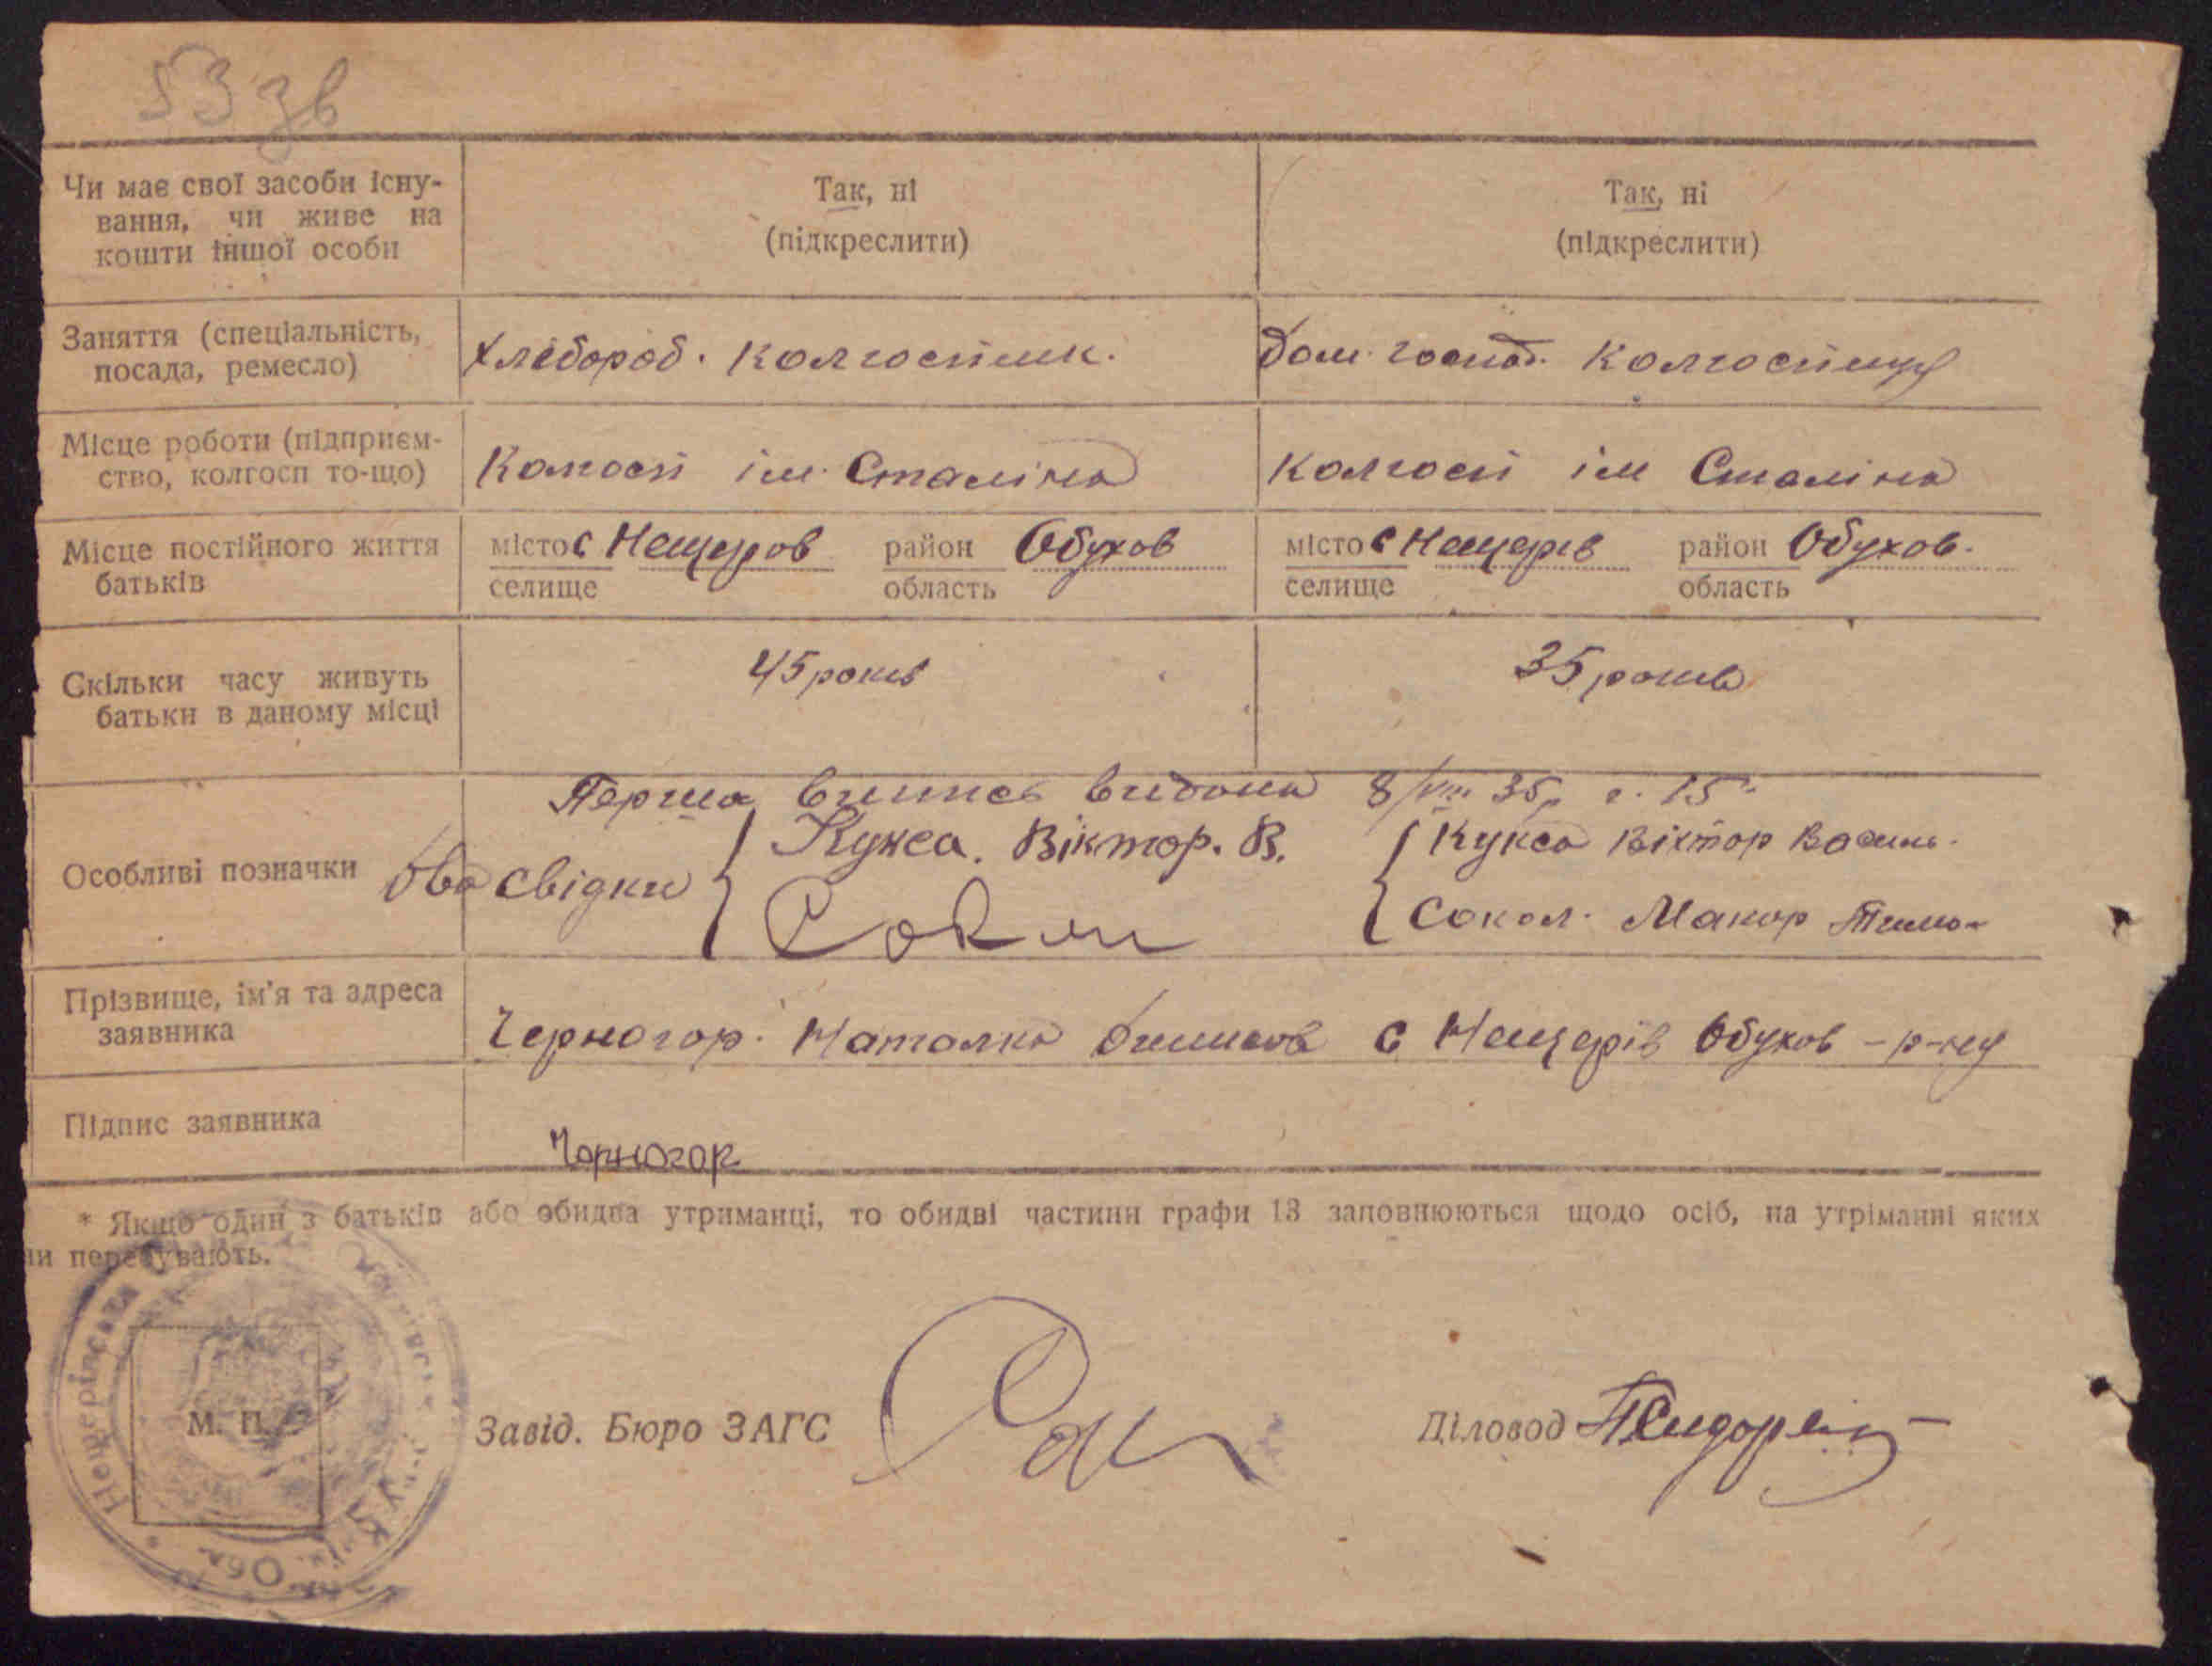 53 зв
Чи має свої засоби існу-
вання, чи живе на
кошти іншої особи
Так, ні
(підкреслити)
Так, ні
(підкреслити)
Заняття (спеціальність,
посада, ремесло)
Хлібороб. Колгоспник.
Дом. господ. Колгоспниця
Місце роботи (підприєм-
ство, колгосп то-що)
Колгосп ім. Сталіна
Колгосп ім Сталіна
Місце постійного життя
батьків
місто с Нещеров район Обухов
селище область
місто с Нещерів район Обухов.
селище область
Скільки часу живуть
батьки в даному місці
45 років
35 років
Особливі позначки
Перша випись видана 8/VIII 35р
Два свідки
Кукса. Віктор. В.
Кукса Віктор Василь.
Сокол. Макор Тимо
Прізвище, ім'я та адреса
заявника
Черногор. Наталка с Нещерів Обухов - р-ну
Підпис заявника
Чорногор
* Якщо один з батьків або обидва утриманці, то обидві частини графи 13 заповнюються щодо осіб, на утріманні яких
ни перебувають.
М. П.
Завід. Бюро ЗАГС
Діловод